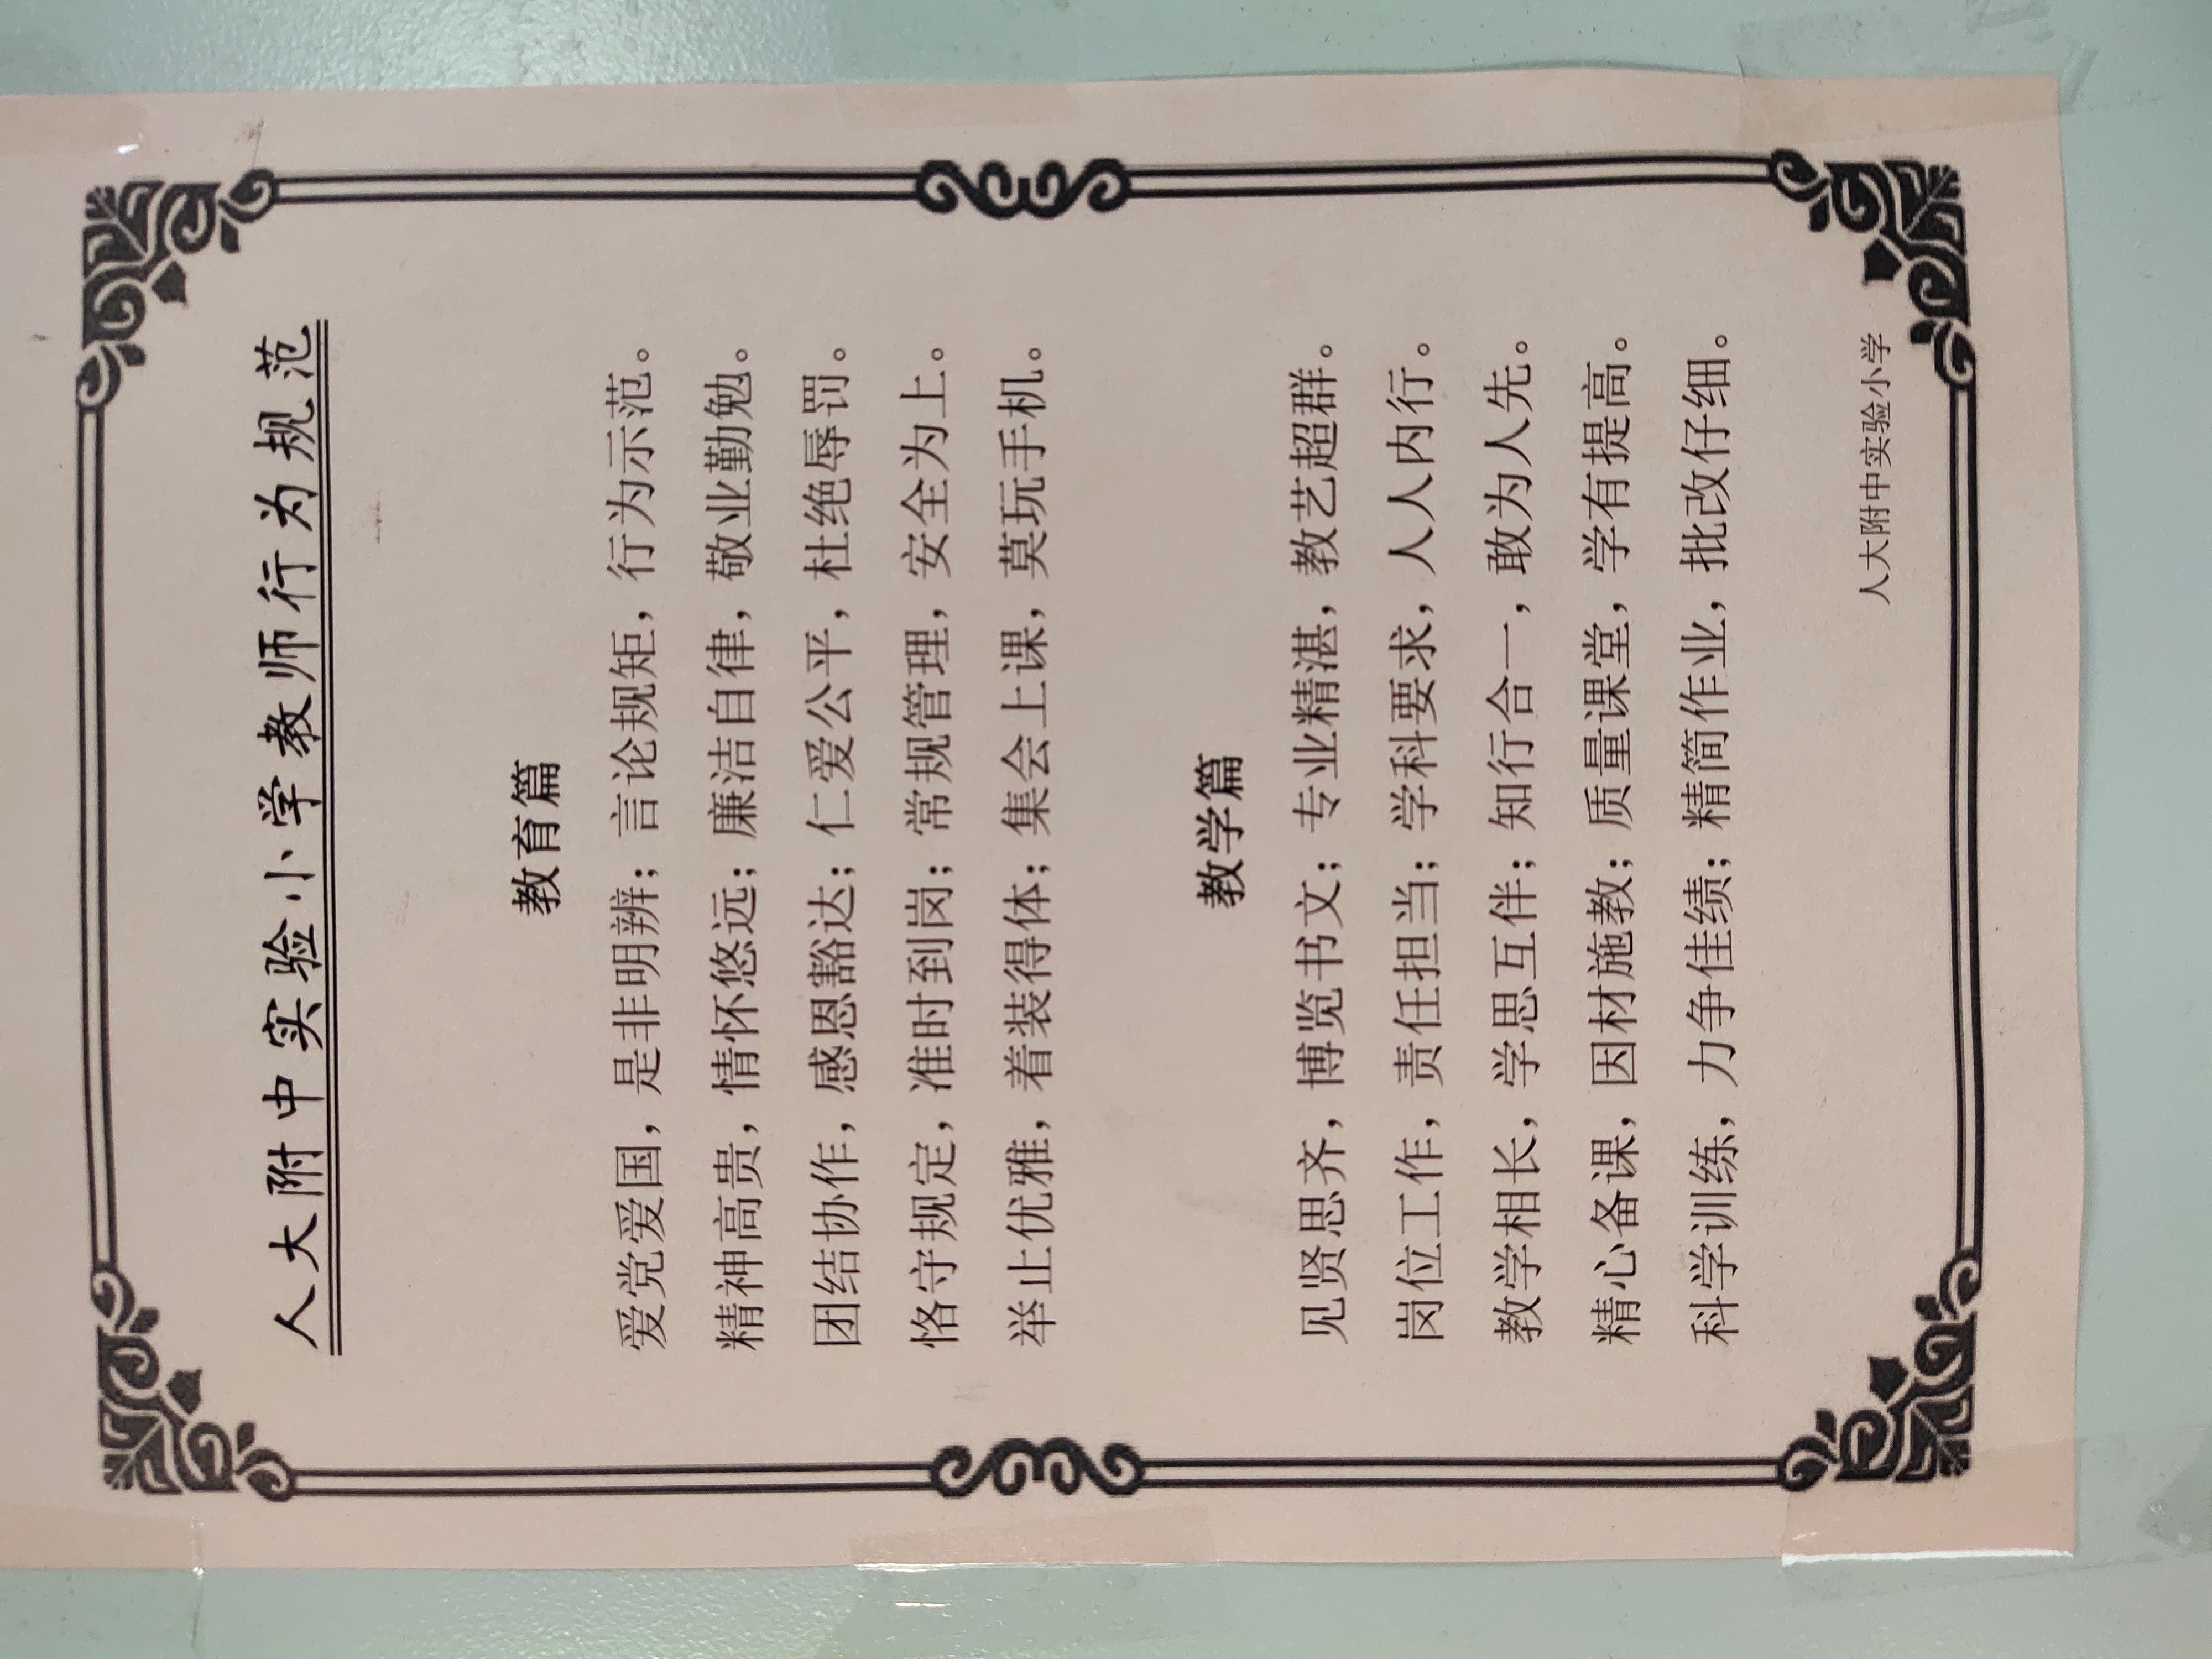 人大附中实验小学教师行为规范
教育篇
爱党爱国，是非明辨；言论规矩，行为示范。
精神高贵，情怀悠远；廉洁自律，敬业勤勉。
团结协作，感恩豁达；仁爱公平，杜绝辱罚。
恪守规定，准时到岗；常规管理，安全为上。
举止优雅，着装得体；集会上课，莫玩手机。
教学篇
见贤思齐，博览书文；专业精湛，教艺超群。
岗位工作，责任担当；学科要求，人人内行。
教学相长，学思互伴；知行合一，敢为人先。
精心备课，因材施教；质量课堂，学有提高。
科学训练，力争佳绩；精简作业，批改仔细。
人大附中实验小学